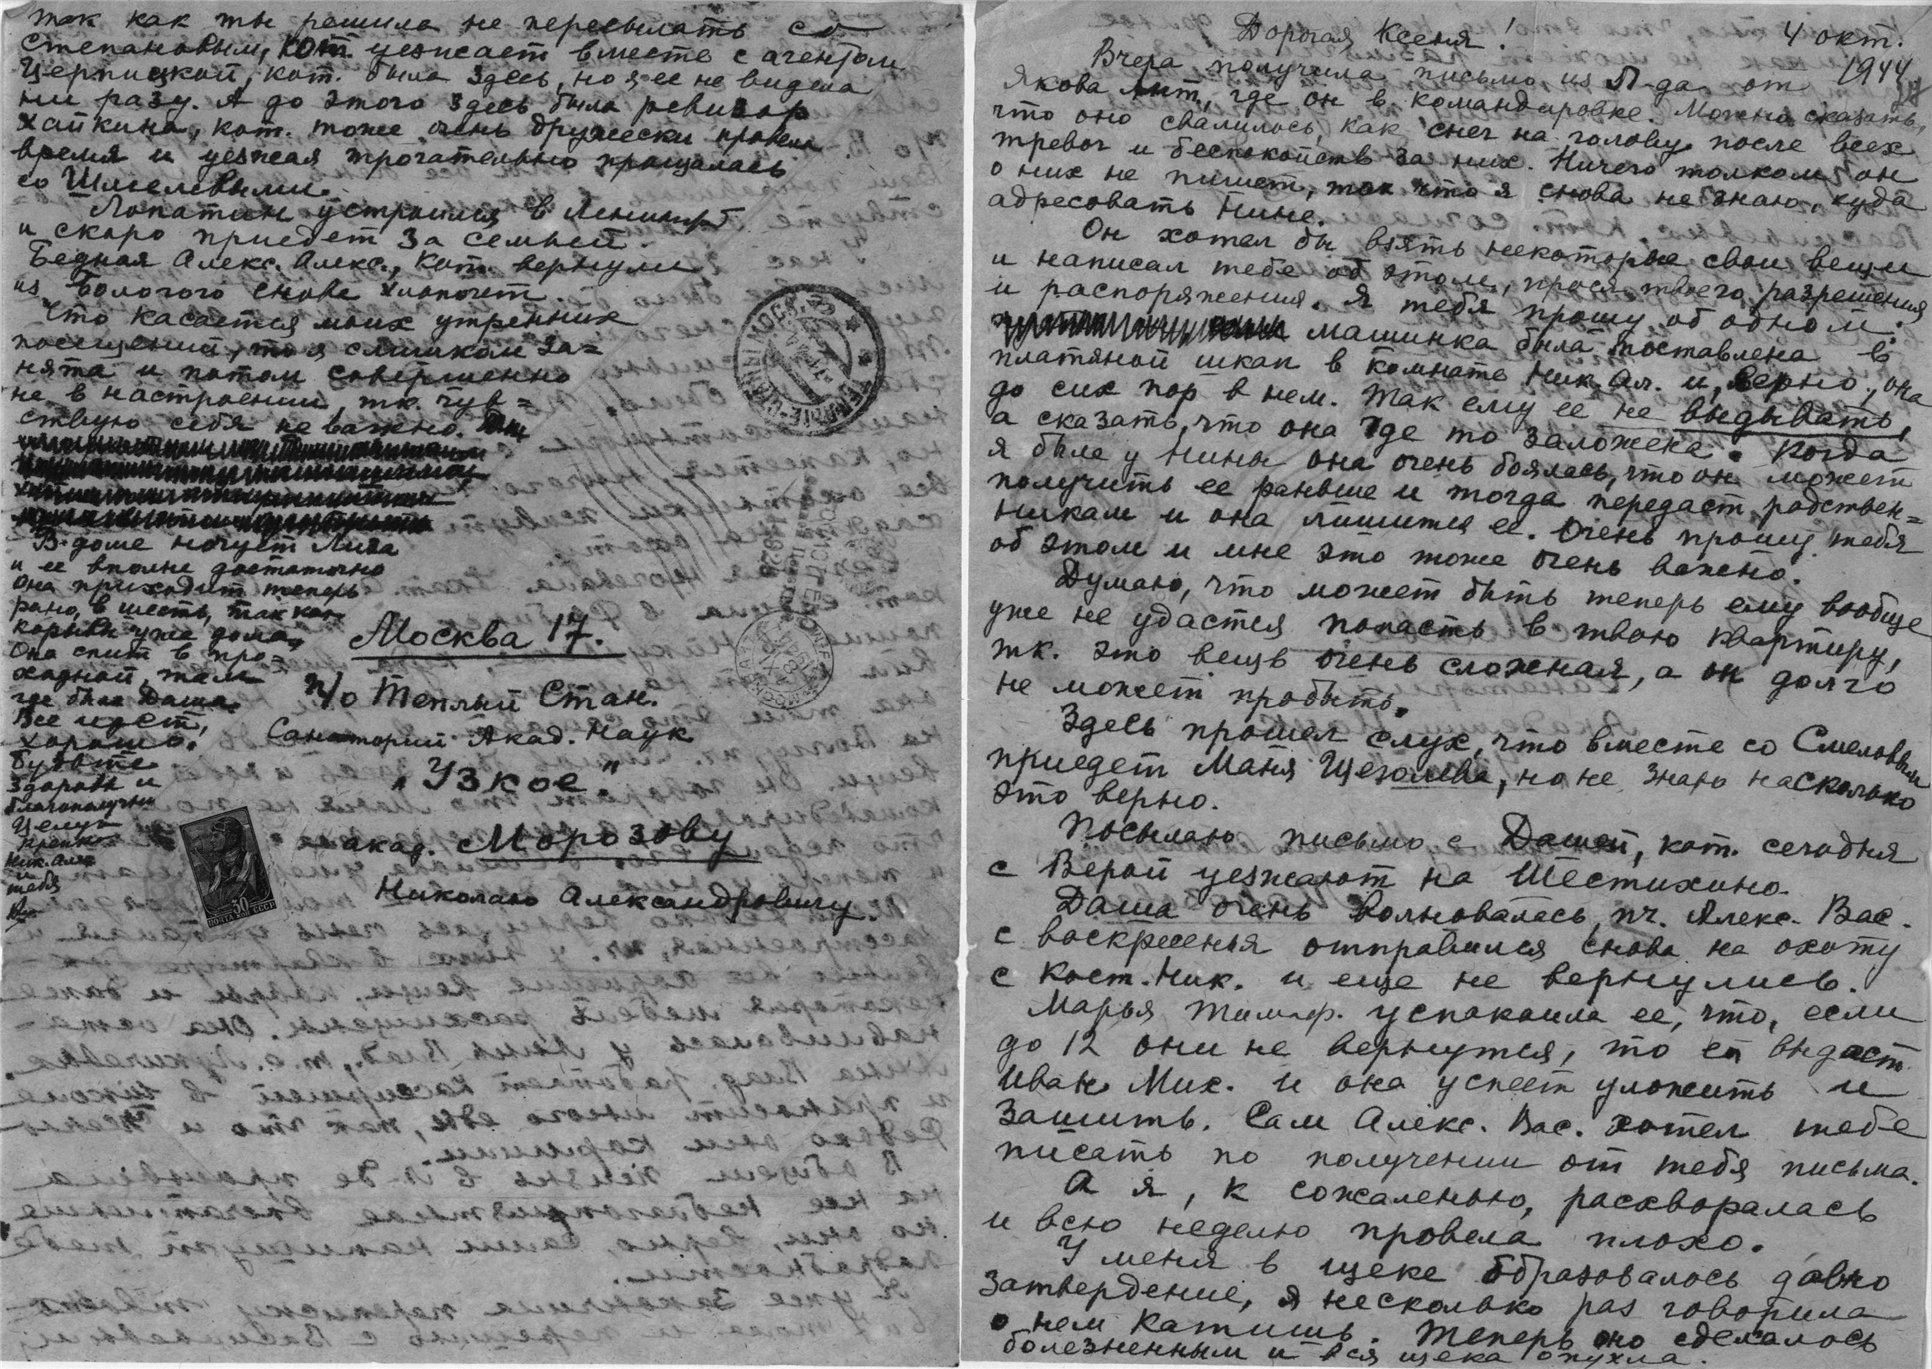 так как ты решила не пересылать со
Степановым, кот. уезжает вместе с агентом
Церпицкой, кот. была здесь, но я ее не видела
ни разу. А до этого здесь была ревизор
Хайкина, кот. тоже очень дружески провела
время и уезжая трогательно прощалась
со Шмелевыми.
Лопатин устроился в Ленинград
и скоро приедет за семьей.
Бедная Алекс. Алекс., кот. вернули
из Бологого снова хлопочет
Что касается моих утренних
посещений, то я слишком за=
нята и потом совершенно
не в настроении т.к. чув=
ствую себя неважно.
В доме ночует Лиза
и ее вполне достаточно
она приходит теперь
рано, в шесть, так как
коровы уже дома,
Она спит в про=
ходной, там
где была Даша.
Все идет,
хорошо.
Будьте
здоровы и
благополучны
Целую
крепко
Ник. Алек
и
тебя
Москва 17.
п/о Теплый Стан.
Санаторий Акад. Наук
„Узкое".
акад. Морозову
Николаю Александровичу.
50
ПОЧТА СССР
Дорогая Ксеня!
4 окт.
1944
Вчера получила письмо из П-да от
Якова Ант., где он в командировке. Можно сказать,
что оно свалилось как снег на голову после всех
тревог и беспокойств за них. Ничего толком он
о них не пишет, так что я снова не знаю, куда
адресовать Нине.
Он хотел бы взять некоторые свои вещи
и написал тебе об этом, прося твоего разрешения
и распоряжения. Я тебя прошу об одном:
машинка была поставлена в
платяной шкап в комнате Ник. Ал. и, верно, она
до сих пор в нем. Так ему ее не выдывать,
а сказать, что она где то заложена. Когда
я была у Нины она очень боялась, что он может
получить ее раньше и тогда передаст родствен=
никам и она лишится ее. Очень прошу тебя
об этом и мне это тоже очень важно.
Думаю, что может быть теперь ему вообще
уже не удастся попасть в твою квартиру,
т.к. это вещь очень сложная, а он долго
не может пробыть.
Здесь прошел слух, что вместе со Смеловым
приедет Маня Щеголева, но не знаю насколько
это верно.
Посылаю письмо с Дашей, кот. сегодня
с Верой уезжают на Шестихино.
Даша очень волновалась, п.ч. Алекс. Вас.
с воскресенья отправился снова на охоту
с Кост. Ник. и еще не вернулись.
Марья Тимоф. успокоила ее, что, если
до 12 они не вернутся, то ей выдаст
Иван Мих. и она успеет уложить и
зашить. Сам Алекс. Вас. хотел тебе
писать по получении от тебя письма.
А я, к сожаленью, расхворалась
и всю неделю провела плохо.
У меня в щеке образовалось давно
затвердение, я несколько раз говорила
о нем Катишь. Теперь оно сделалось
болезненным и вся щека опухла.